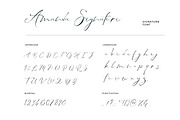 Amanda Signature
SIGNATURE
FONT
UPPERCASE
A B C D E F G H I
J K L M N O P Q R
S T U V W X Y Z
LOWERCASE
a b c d e f g h i
j k l m n o p q r s
t u v w x y z
NUMERAL
1234567890
PUNCTUATION